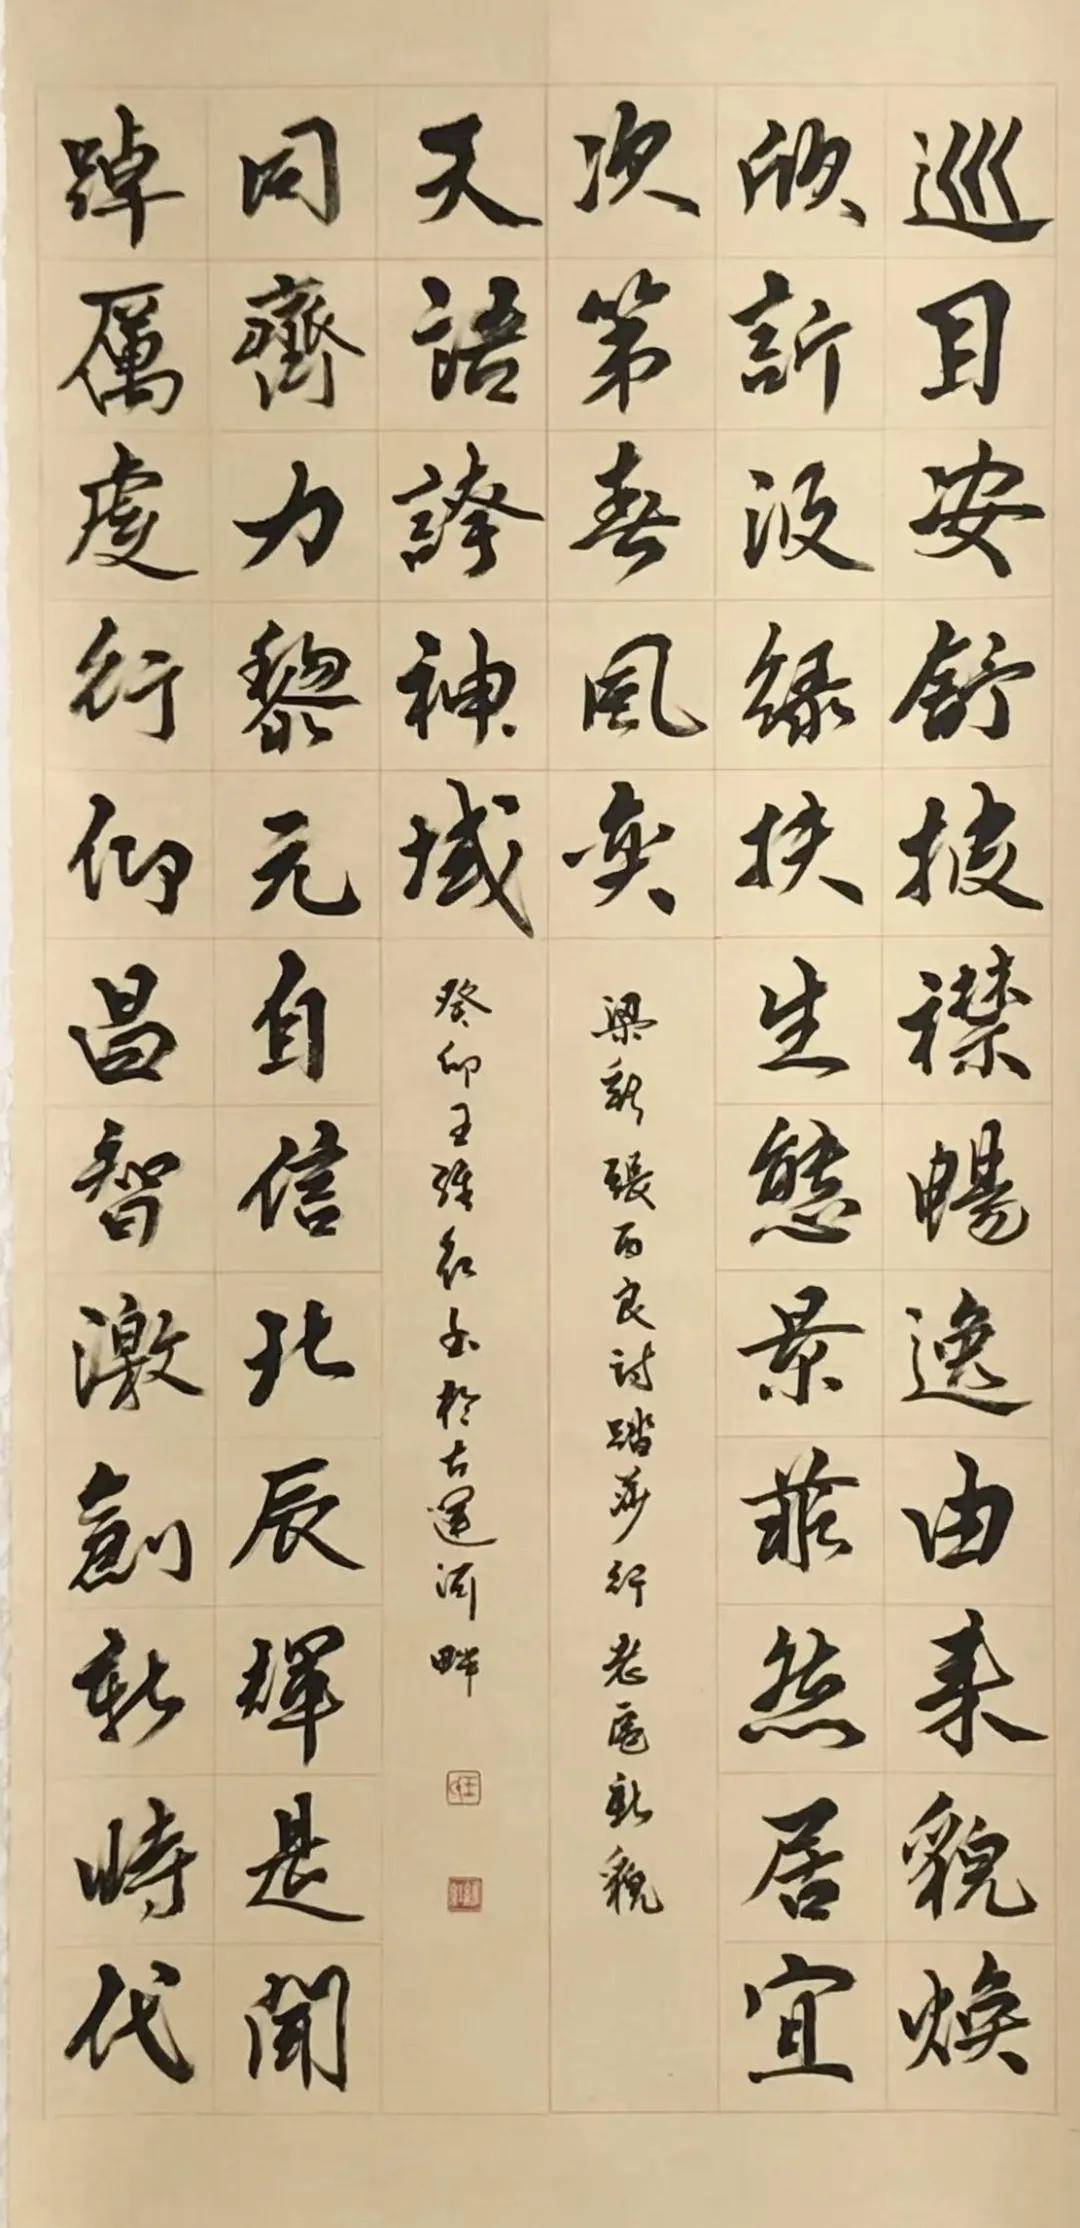 巡目安舒披襟暢逸由来貌焕
欣訢没緑扶生態景蔚然居宜
次第春風奐
踔厲虔行仰昌智激創新時代
同齊力黎元自信北辰輝是聞
天語誇神域
梁新張西良詩踏莎行老區新貌
癸卯王維紅書於古運河畔